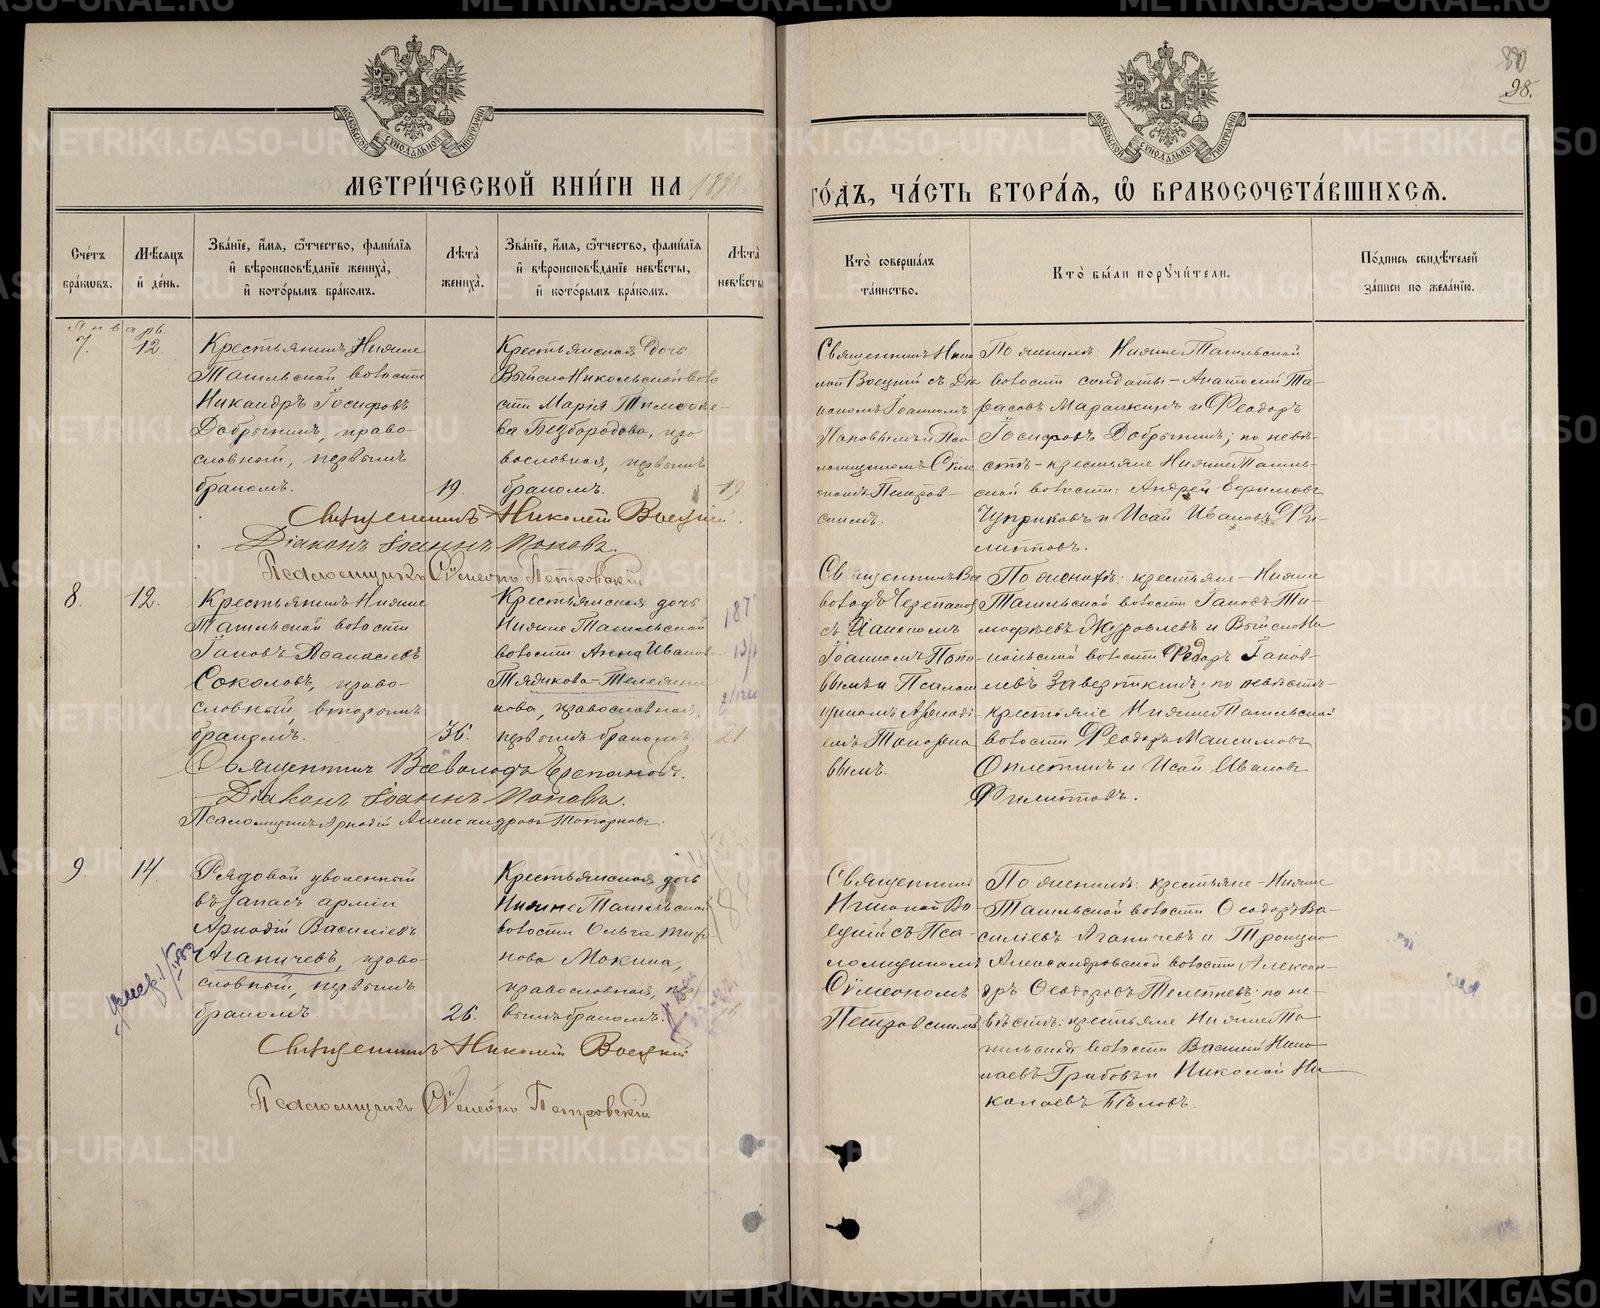 МЕТРИ́ЧЕСКОЙ КНИ́ГИ НА
ГО́ДЪ, ЧА́СТЬ ВТОРА́Я, Ѽ БРАКОСОЧЕТА́ВШИХСЯ.
98.
Сче́тъ бра́ковъ.
Мѣ́сяцъ и де́нь.
Зва́нїе, и́мя, ѻ́тчество, фами́лїя и вѣроисповѣ́данїе жениха̀, и кото́рымъ бра́комъ.
Лѣ́та жениха̀.
Зва́нїе, и́мя, ѻ́тчество, фами́лїя и вѣроисповѣ́данїе невѣ́сты, и кото́рымъ бра́комъ.
Лѣ́та невѣ́сты
Кто̀ соверша́лъ та́инство.
Кто̀ бы́ли поручи́тели.
По́дпись свидѣ́телей за́писи по жела́нїю.
Январь.
7.
12
Крестьянинъ Нижне
Тагильской волости
Никандръ Іосифовъ
Добрынинъ, право-
словный, первымъ
бракомъ.
19.
Крестьянская дочь
Выйско Никольской воло
сти Марія Тимофе-
ва Безбородова, пра
вославная, первымъ
бракомъ.
19
Священникъ Нико
лай Воецкій съ Діа
кономъ Іоанномъ
Поповымъ и Пса
ломщикомъ Сѵме
ономъ Петров-
скимъ.
По женихѣ: Нижне Тагильской
волости солдаты - Анатолій Та-
расовъ Марашкинъ и Феодоръ
Іосифовъ Добрынинъ; по невѣ-
стѣ - крестьяне Нижне Тагиль-
ской волости: Андрей Ефимовъ
Чуприковъ и Исай Ивановъ Фи-
липповъ.
Священникъ Николай Воецкій.
Діаконъ Іоаннъ Поповъ.
Псаломщикъ Сѵмеонъ Петровскій
8.
12.
Крестьянинъ Нижне
Тагильской волости
Іаковъ Аѳанасіевъ
Соколовъ, право-
славный, вторымъ
бракомъ.
36.
Крестьянская дочь
Нижне Тагильской
волости Анна Иванова
православная,
первымъ бракомъ.
21
Священникъ Все
володъ Черепанов
съ Діакономъ
Іоанномъ Попо-
вымъ и Псалом
щикомъ Аркаді-
емъ Топорко
вымъ.
По женихѣ: крестьяне - Нижне
Тагильской волости Іаковъ Ти-
мофѣевъ Журовлевъ и Выйско Ни
кольской волости Федоръ Іаков-
левъ Заверткинъ; по невѣстѣ-
крестьяне Нижне Тагильской
волости Феодоръ Максимовъ
Оплетинъ и Исай Ивановъ
Филипповъ.
Священникъ Всеволодъ Черепановъ.
Діаконъ Іоаннъ Поповъ.
Псаломщикъ Аркадій Александровъ Топорковъ.
9.
14
Рядовой уволенный
въ запасъ арміи
Аркадій Василіевъ
Аганичевъ, право-
славный, первымъ
бракомъ.
26.
Крестьянская дочь
Нижне Тагильской
волости Ольга
Мокина,
православная, пер
вымъ бракомъ.
Священникъ
Николай Во-
ецкій съ Пса-
ломщикомъ
Сѵмеономъ
Петровскимъ
По женихѣ: крестьяне - Нижне
Тагильской волости Ѳеодоръ Ва-
силіевъ Аганичевъ и Троицко
Александровской волости Алексан-
дръ Ѳеодоровъ Телепневъ; по не-
вѣстѣ: крестьяне Нижне Та-
гильской волости Василій Нико-
лаевъ Грибовъ и Николай Ни
колаевъ Бѣловъ.
Священникъ Николай Воецкій
Псаломщикъ Сѵмеонъ Петровскій
METRIKI.GASO-URAL.RU